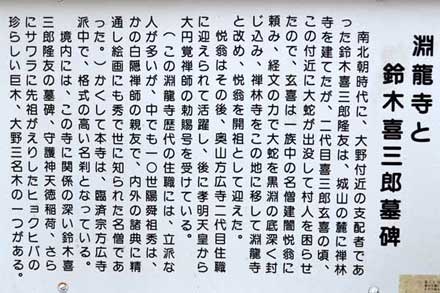 淵龍寺と
鈴木喜三郎墓碑
南北朝時代に、大野付近の支配者であ
った鈴木喜三郎隆友は、城山の麓に禅林
寺を建てたが、二代目喜三郎玄喜の頃、
この付近に大蛇が出没して村人を困らせ
たので、玄喜は一族中の名僧建闇悦翁に
頼み、経文の力で大蛇を黒淵の底深く封
じ込み、禅林寺をこの地に移して淵龍寺
と改め、悦翁を開祖として迎えた。
悦翁はその後、奥山方広寺二代目住職
に迎えられて活躍し、後に孝明天皇から
大円覚禅師の勅賜号を受けている。
（この淵龍寺歴代の住職には、立派な
人が多いが、中でも一〇世陽舜祖秀は、
かの白隠禅師の親友で、内外の諸典に精
通し絵画にも秀で世に知られた名僧であ
った。）かくして本寺は、臨済宗方広寺
派中で、格式の高い名刹となっている。
境内には、この寺に関係の深い鈴木喜
三郎隆友の墓碑、守護神天徳稲荷、さら
にサワラに先祖がえりしたヒョクヒバの
珍らしい巨木、大野三名木の一つがある。